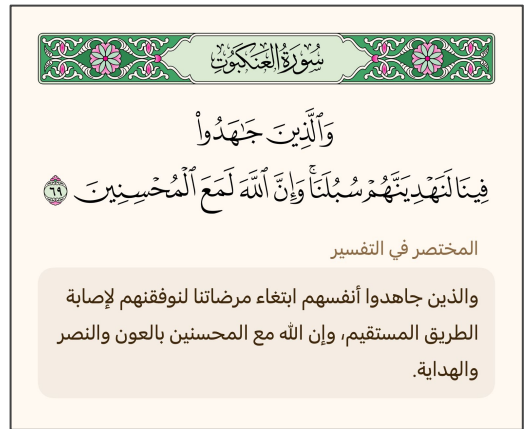 سُورَةُ الْعَنكَبُوتِ
وَٱلَّذِينَ جَـٰهَدُوا۟
فِينَا لَنَهْدِيَنَّهُمْ سُبُلَنَا ۚ وَإِنَّ ٱللَّهَ لَمَعَ ٱلْمُحْسِنِينَ ٦٩
المختصر في التفسير
والذين جاهدوا أنفسهم ابتغاء مرضاتنا لنوفقنهم لإصابة
الطريق المستقيم، وإن الله مع المحسنين بالعون والنصر
والهداية.